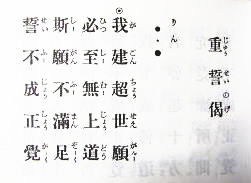 重誓偈
じゅうせいのげ
りん
我建超世願
がごんちょうせがんー
必至無上道
ひっしーむーじょうどう
斯願不滿足
しーがんふーまんぞーく
誓不成正覺
せいふーじょうしょうがーく